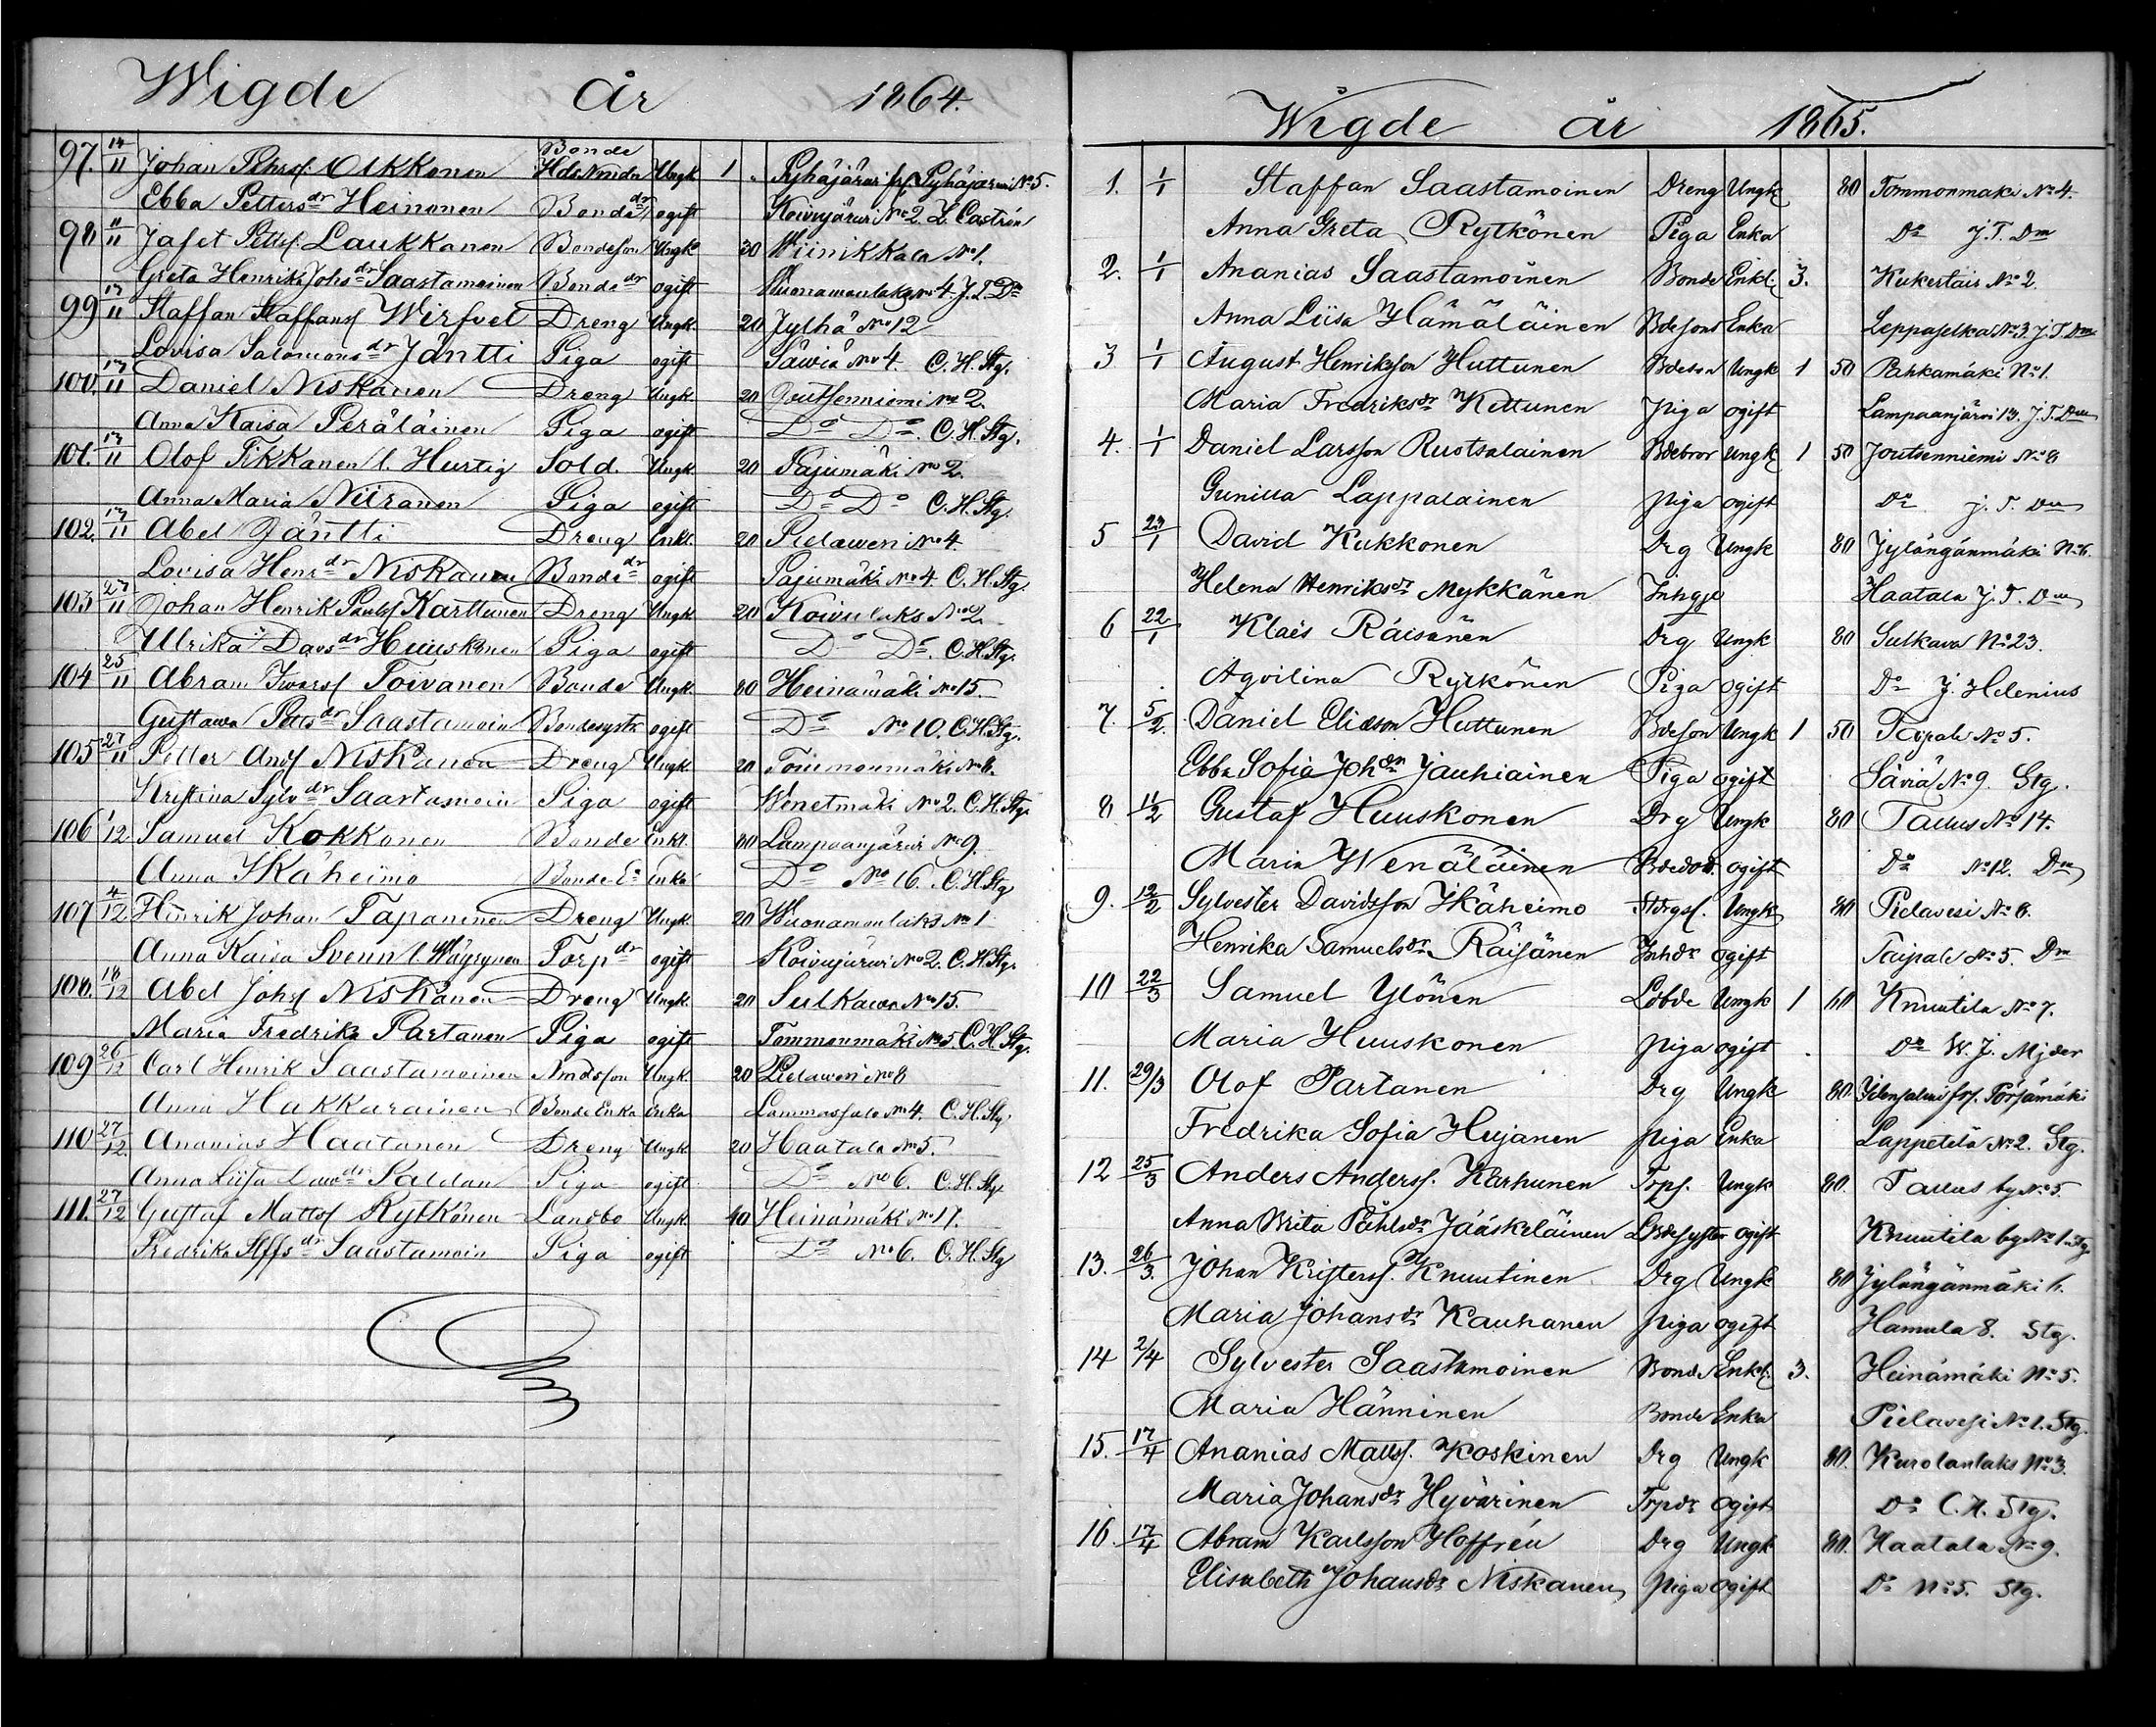 Wigde år 1864.
97. 14/11 Johan Pehrsf. Olkkonen Bonde Ungk 1 Pyhäjärvi frs. Pyhäjärvi No 5.
Ebba Petters dr Heinonen Bonde dr ogift Koivujärvi No 2. L. Castrén
98 11/11 Jafet Pettsf. Laukkanen Bondeson Ungk 30 Wiinikkala No 1.
Greta Henrika Johs dr Saastamoinen Bonde dr ogift Wuonamonlaks No 4. J. T. Dm
99 13/11 Staffan Staffansf Wirfvel Dreng Ungk. 20 Jylhä No 12
Lovisa Salomons dr Jäntti Piga ogift Säwiä No 4. C. H. Stg.
100. 13/11 Daniel Niskanen Dreng Ungk. 20 Joutsenniemi No 2.
Anna Kaisa Peräläinen Piga ogift Do Do. C. H. Stg.
101. 13/11 Olof Tikkanen l. Hurtig Sold. Ungk. 20 Pajumäki No 2.
Anna Maria Niiranen Piga ogift Do Do C. H. Stg.
102. 13/11 Abel Jäntti Dreng Enkl. 20 Pielawesi No 4.
Lovisa Henr dr Niskanen Bonde dr ogift Pajumäki No 4. C. H. Stg.
103 27/11 Johan Henrik Paulsf Karttunen Dreng Ungk. 20 Koivulaks No 2.
Ulrika Davs dr Huuskonen Piga ogift Do Do. C. H. Stg.
104 25/11 Abram Iwarsf Toivanen Bonde Ungk. 80 Heinämäki No 15.
Gustawa Petts dr Saastamoin Bondesystr ogift Do No 10. C. H. Stg.
105 27/11 Petter Andsf Niskanen Dreng Ungk. 20 Tommonmäki No 8.
Kristina Sylv dr Saastamoin Piga ogift Wenetmäki No 2. C. H. Stg.
106 1/12 Samuel Kokkonen Bonde Enkl. 80 Lampaanjärvi No 9.
Anna Ikäheimo Bonde Ea Enka Do No 16. C. H. Stg
107 4/12 Henrik Johan Tapaninen Dreng Ungk. 20 Wuonamonlaks No 1
Anna Kaisa Svenn l. Wäyrynen Torp dr ogift Koivujärvi No 2. C. H. Stg.
108. 18/12 Abel Johsf Niskanen Dreng Ungk. 20 Sulkawa No 15.
Maria Fredrika Partanen Piga ogift Tommonmäki No 5. C. H. Stg.
109 26/12 Carl Henrik Saastamoinen Nmdsson Ungk. 20 Pielawesi No 8
Anna Hakkarainen Bonde Enka Enka Lammassalo No 4. C. H. Stg.
110 27/12. Ananias Haatanen Dreng Ungk. 20 Haatala No 5.
Anna Liisa Law dr Saldan Piga ogift Do No 6. C. H. Stg
111. 27/12 Gustaf Mattsf Rytkönen Landbo Ungk. 40 Heinämäki No 17.
Fredrika Stffs dr Saastamoin Piga ogift Do No 6. C. H. Stg
Wigde år 1865.
1. 1/1 Staffan Saastamoinen Dreng Ungk 80 Tommonmäki No 4.
Anna Greta Rytkönen Piga Enka Do J. T. Dm
2. 1/1 Ananias Saastamoinen Bonde Enkl. 3. Kukertais No 2.
Anna Liisa Hämäläinen Bdesons Enka Leppäselkä No 3. J. T. Dm
3 1/1 August Henriksson Huttunen Bdeson Ungk 1 50 Pahkamäki No 1.
Maria Fredriks dr Kettunen piga ogift Lampaanjärvi 13. J. T. Dm
4. 1/1 Daniel Larsson Ruotsalainen Bdebror Ungk 1 50 Joutsenniemi No 8
Gunilla Lappalainen piga ogift Do J. T. Dm
5 23/1 David Kukkonen Drg Ungk 80 Jylängänmäki No 6.
Helena Henriks dr Mykkänen Inhye Haatala J. T. Dm
6 22/1 Klaës Räisänen Drg Ungk 80 Sulkava No 23.
Aqvilina Rytkönen Piga ogift Do J. Helenius
7. 5/2. Daniel Eliasson Huttunen Bdeson Ungk 1 50 Taipale No 5.
Ebba Sofia Joh dr Jauhiainen Piga ogift Säviä No 9. Stg.
8 11/2 Gustaf Huuskonen Drg Ungk 80 Tallus No 14.
Maria Wenäläinen Bdedot. ogift Do No 12. Dm
9. 12/2 Sylvester Davidsson Ikäheimo Stdrgs. Ungk 80 Pielavesi No 8.
Henrika Samuels dr Räisänen Inhdr ogift Taipale No 5. Dm
10 22/3 Samuel Ylönen Ldbde Ungk 1 60 Knuutila No 7.
Maria Huuskonen piga ogift Do W. J. Mjder
11. 29/3 Olof Partanen Drg Ungk 80 Idensalmi frs. Pörsänmäki
Fredrika Sofia Hujanen piga Enka Lappetelä No 2. Stg.
12 25/3 Anders Anderss. Karhunen Torps. Ungk 80. Tallus by No 5.
Anna Brita Påhls dr Jääskeläinen Ldbdesyster ogift Knuutila by No 1. Stg
13. 26/3. Johan Kristerss. Knuutinen Drg Ungk 80 Jylängänmäki 6.
Maria Johans dr Kauhanen piga ogift Hamula 8. Stg.
14 2/4 Sylvester Saastamoinen Bonde Enkl. 3. Heinämäki No 5.
Maria Hänninen Bonde Enka Pielavesi No 1. Stg.
15. 17/4 Ananias Matss. Koskinen Drg Ungk 80. Kurolanlaks No 3.
Maria Johans dr Hyvärinen Trpdr ogift Do C. H. Stg.
16. 17/4 Abram Karlsson Hoffrén Drg Ungk 80. Haatala No 9.
Elisabeth Johans dr Niskanen piga ogift Do No 5. Stg.